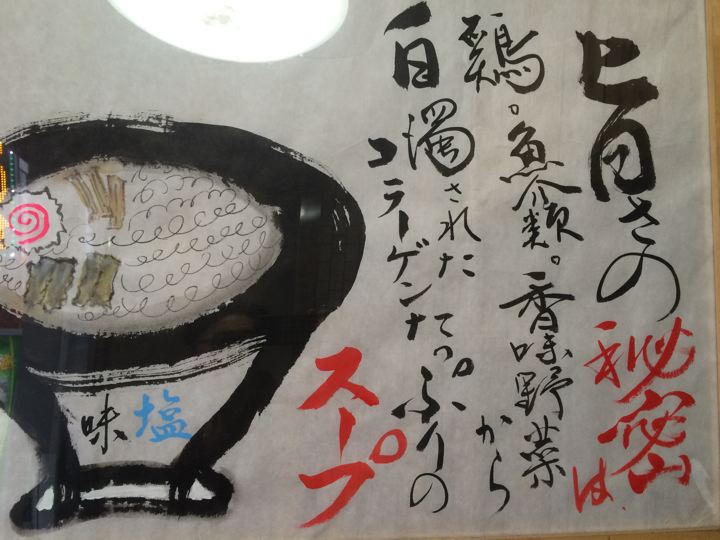 旨さの秘密は、
鶏。魚介類。香味野菜から
白濁された
コラーゲンたっぷりの
スープ
塩味